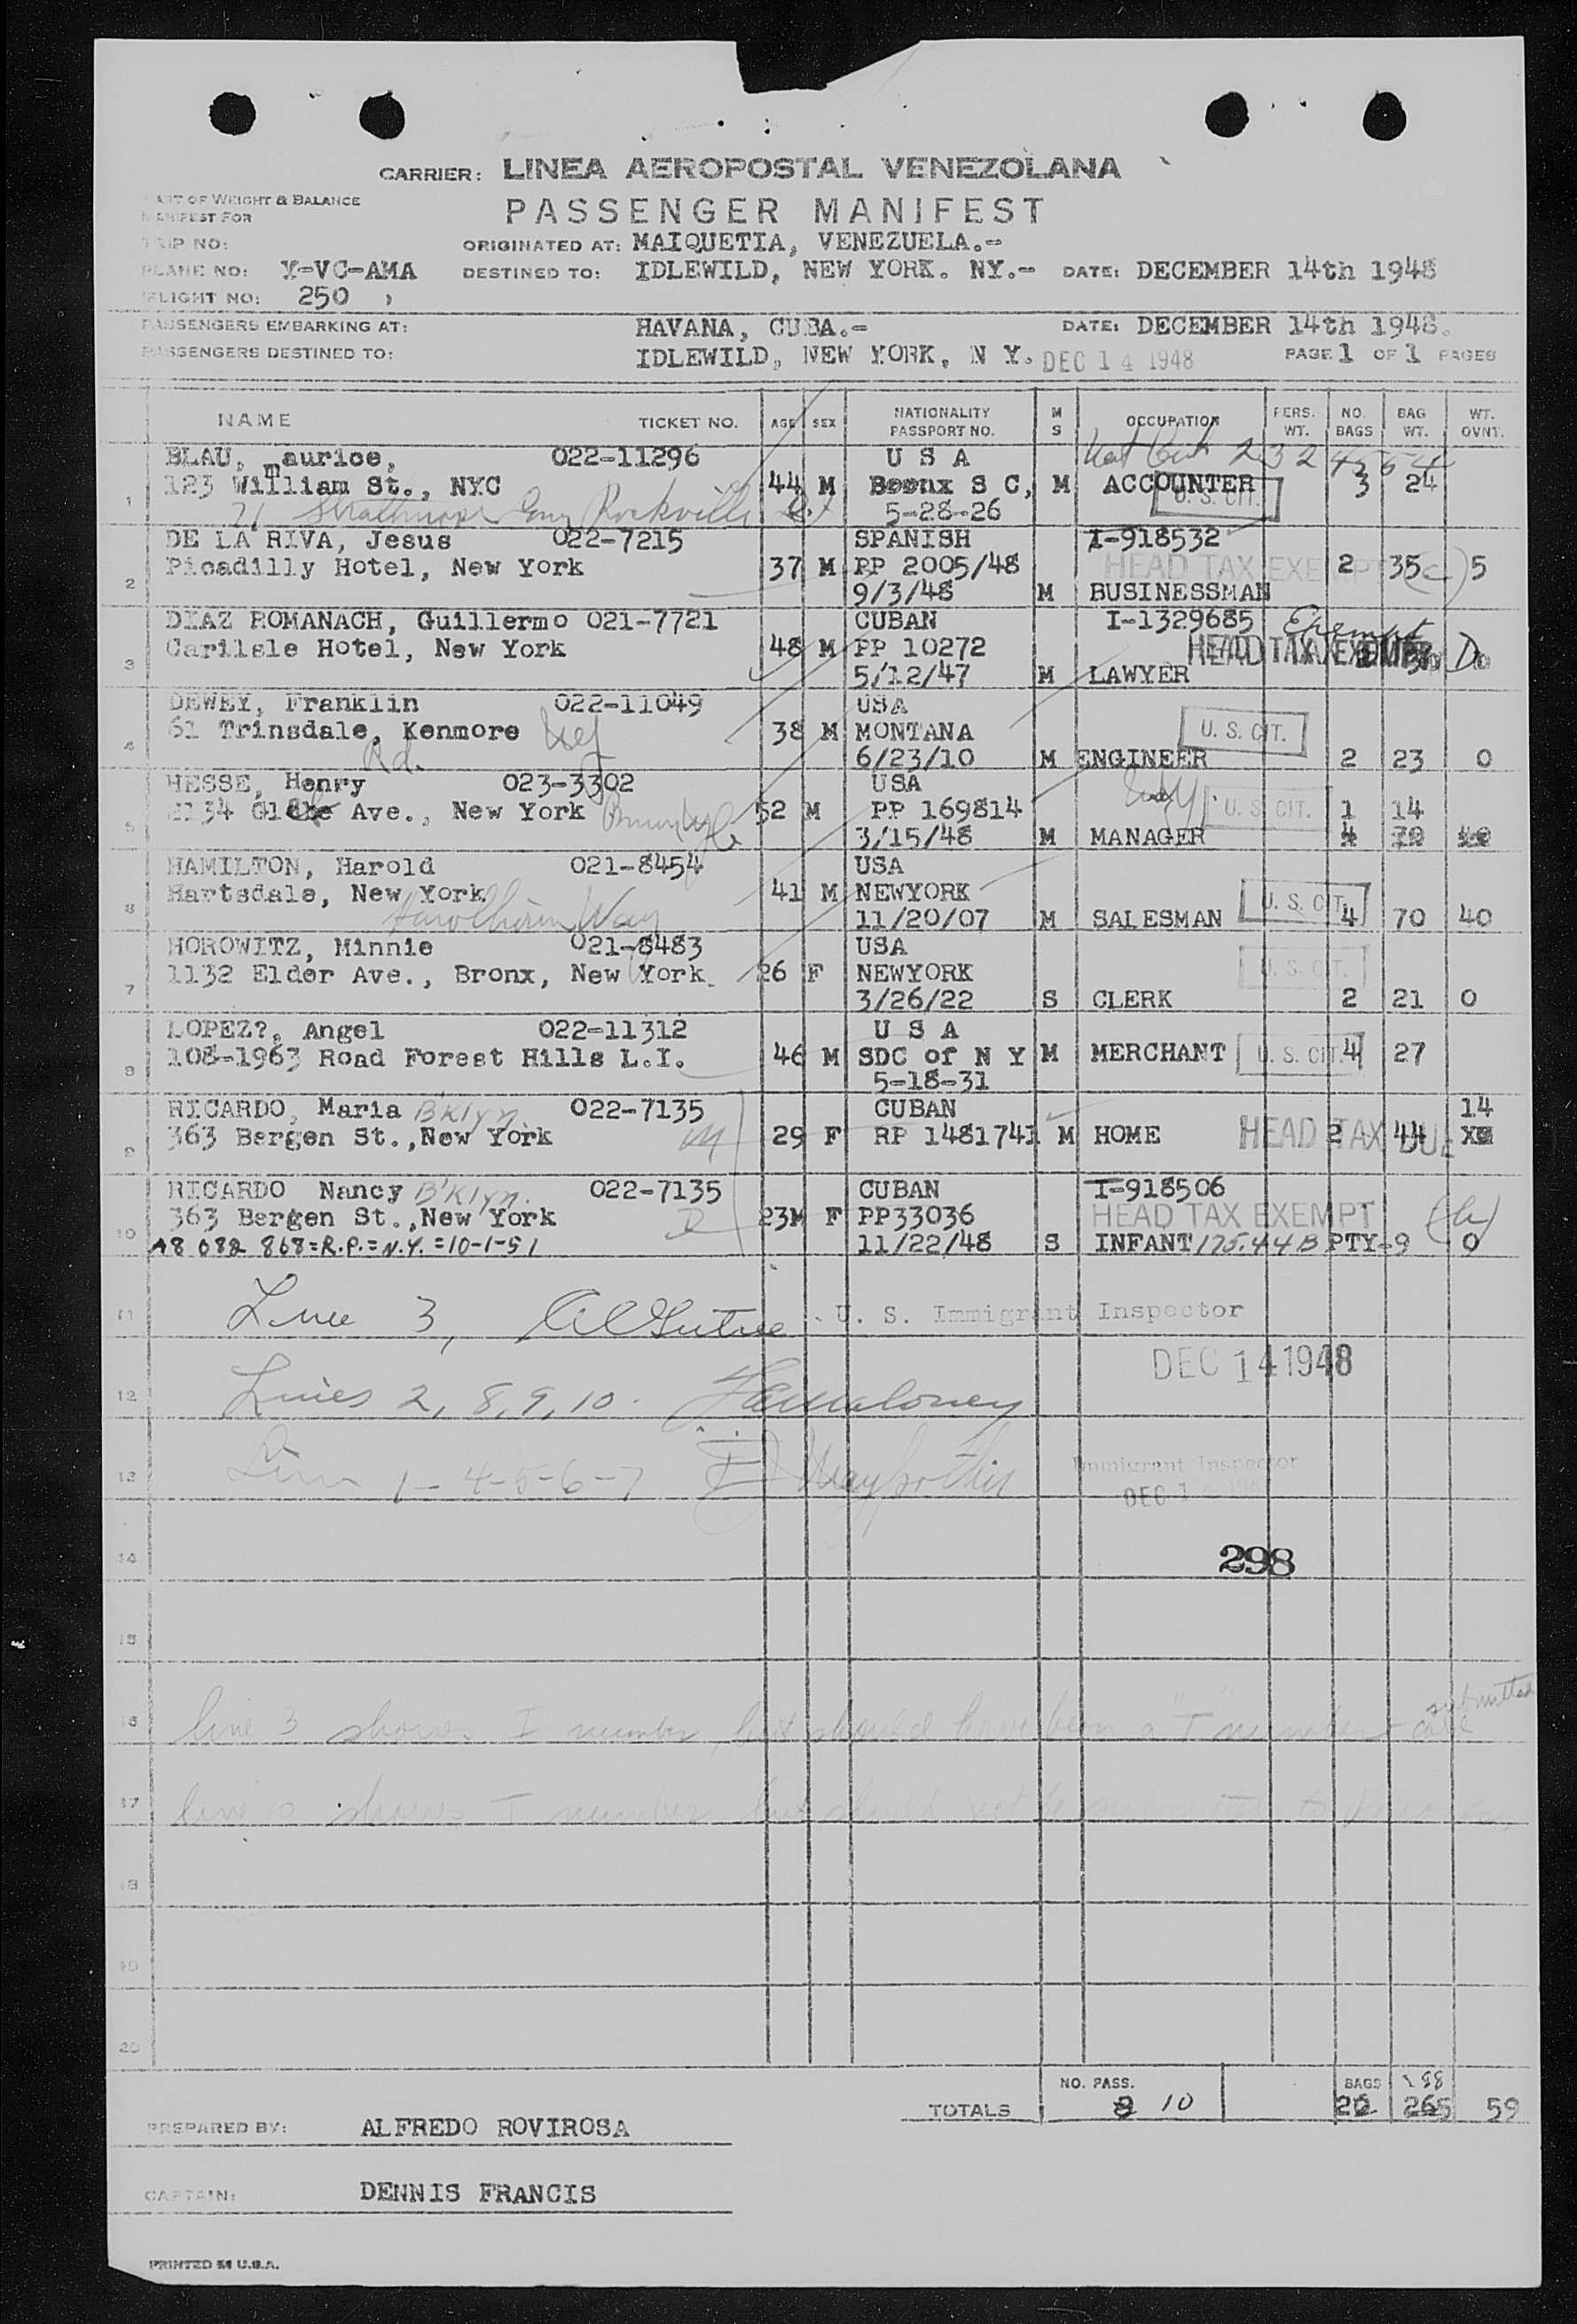 CARRIER: LINEA AEROPOSTAL VENEZOLANA
PART OF WEIGHT & BALANCE
MANIFEST FOR
PASSENGER MANIFEST
TRIP NO:
ORIGINATED AT: MAIQUETIA, VENEZUELA.-
PLANE NO: Y-VC-AMA DESTINED TO: IDLEWILD, NEW YORK. NY.- DATE: DECEMBER 14th 1948
FLIGHT NO: 250
PASSENGERS EMBARKING AT: HAVANA, CUBA.- DATE: DECEMBER 14th 1948.
PASSENGERS DESTINED TO: IDLEWILD, NEW YORK, N Y. DEC 14 1948 PAGE 1 OF 1 PAGES
NAME TICKET NO. AGE SEX NATIONALITY PASSPORT NO. M S OCCUPATION PERS. WT. NO. BAGS BAG WT. WT. OVNT.
BLAU, maurice, 022-11296 U S A
1 123 William St., NYC 44 M Boonx S C, M ACCOUNTER 3 24
71 Strathmore Rockville 5-28-26 U. S. CIT.
DE LA RIVA, Jesus 022-7215 SPANISH I-918532
2 Picadilly Hotel, New York 37 M PP 2005/48 HEAD TAX EXEMPT 2 35 (c) 5
9/3/48 M BUSINESSMAN
DIAZ ROMANACH, Guillermo 021-7721 CUBAN I-1329685 Exempt
3 Carilsle Hotel, New York 48 M PP 10272 HEAD TAX EXEMPT
5/12/47 M LAWYER
DEWEY, Franklin 022-11049 USA
4 61 Trinsdale, Kenmore 38 M MONTANA U. S. CIT.
Rd. 6/23/10 M ENGINEER 2 23 0
HESSE, Henry 023-3302 USA
5 2134 Glebe Ave., New York 52 M PP 169814 U. S. CIT. 1 14
3/15/48 M MANAGER 4 70 40
HAMILTON, Harold 021-8454 USA
6 Hartsdale, New York 41 M NEWYORK U. S. CIT.
11/20/07 M SALESMAN 4 70 40
HOROWITZ, Minnie 021-8483 USA
7 1132 Elder Ave., Bronx, New York. 26 F NEWYORK U. S. CIT.
3/26/22 S CLERK 2 21 0
LOPEZ?, Angel 022-11312 U S A
8 108-1963 Road Forest Hills L.I. 46 M SDC of N Y M MERCHANT U. S. CIT. 4 27
5-18-31
RICARDO, Maria B'klyn. 022-7135 CUBAN 14
9 363 Bergen St.,New York M 29 F RP 1481741 M HOME HEAD TAX DUE 2 44
RICARDO Nancy B'klyn. 022-7135 CUBAN I-918506
363 Bergen St.,New York 23M F PP33036 HEAD TAX EXEMPT
10 A8 082 868=R.P.=N.Y.=10-1-51 11/22/48 S INFANT 175.44B PTY-9 0
11 Line 3, U. S. Immigrant Inspector
DEC 14 1948
12 Lines 2, 8, 9, 10.
13 Line 1-4-5-6-7 Immigrant Inspector
DEC 1
14 298
15
submitted
16 line 3 shows I number, but should have been a "T" number
17 shows I number but should not be
18
19
20
TOTALS NO. PASS. 8 10 BAGS 22 188 265 59
PREPARED BY: ALFREDO ROVIROSA
CAPTAIN: DENNIS FRANCIS
PRINTED IN U.S.A.